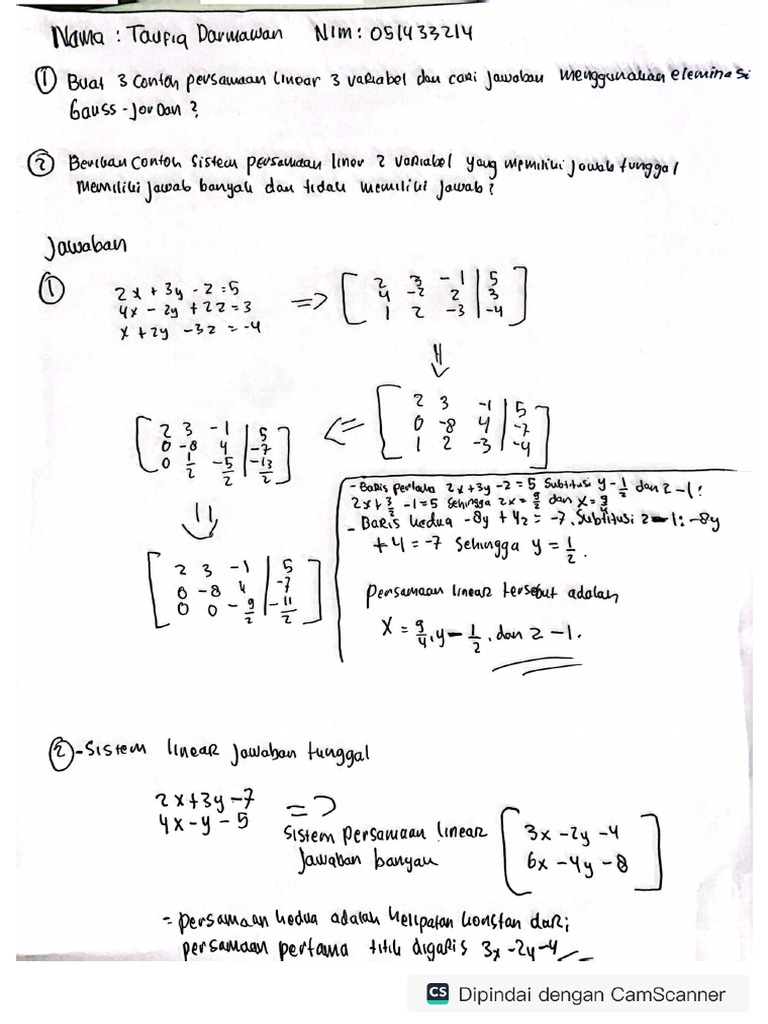 Nama : Taufiq Darmawan NIM : 051433214
① Buat 3 Contoh persamaan linear 3 variabel dan cari jawaban menggunakan eleminasi
Gauss - Jordan ?
② Berikan Contoh Sistem persamaan linor 2 variabel yang memiliki jawab tunggal
memiliki jawab banyak dan tidak memiliki jawab ?
Jawaban
①
2x + 3y - z = 5
4x - 2y + 2z = 3
x + 2y - 3z = -4
=> [ 2 3 -1 | 5
4 -2 2 | 3
1 2 -3 | -4 ]
[ 2 3 -1 | 5
0 -8 4 | -7
1 2 -3 | -4 ]
<= [ 2 3 -1 | 5
0 -8 4 | -7
0 1/2 -5/2 | -13/2 ]
[ 2 3 -1 | 5
0 -8 4 | -7
0 0 -9/2 | -11/2 ]
- Baris pertama 2x+3y-z=5 Subtitusi y-1/2 dan z-1:
2x+3/2 -1=5 sehingga 2x=9/2 dan x=9/4
- Baris kedua -8y + 4z = -7. Subtitusi z-1: -8y
+4 = -7 sehingga y = 1/2.
persamaan linear tersebut adalah
X = 9/4, y - 1/2, dan z - 1.
② - Sistem linear jawaban tunggal
2x+3y-7
4x-y-5
=>
Sistem persamaan linear
jawaban banyak
[ 3x - 2y - 4
6x - 4y - 8 ]
= persamaan kedua adalah kelipatan konstan dari;
persamaan pertama titik digaris 3x-2y-4
CS Dipindai dengan CamScanner